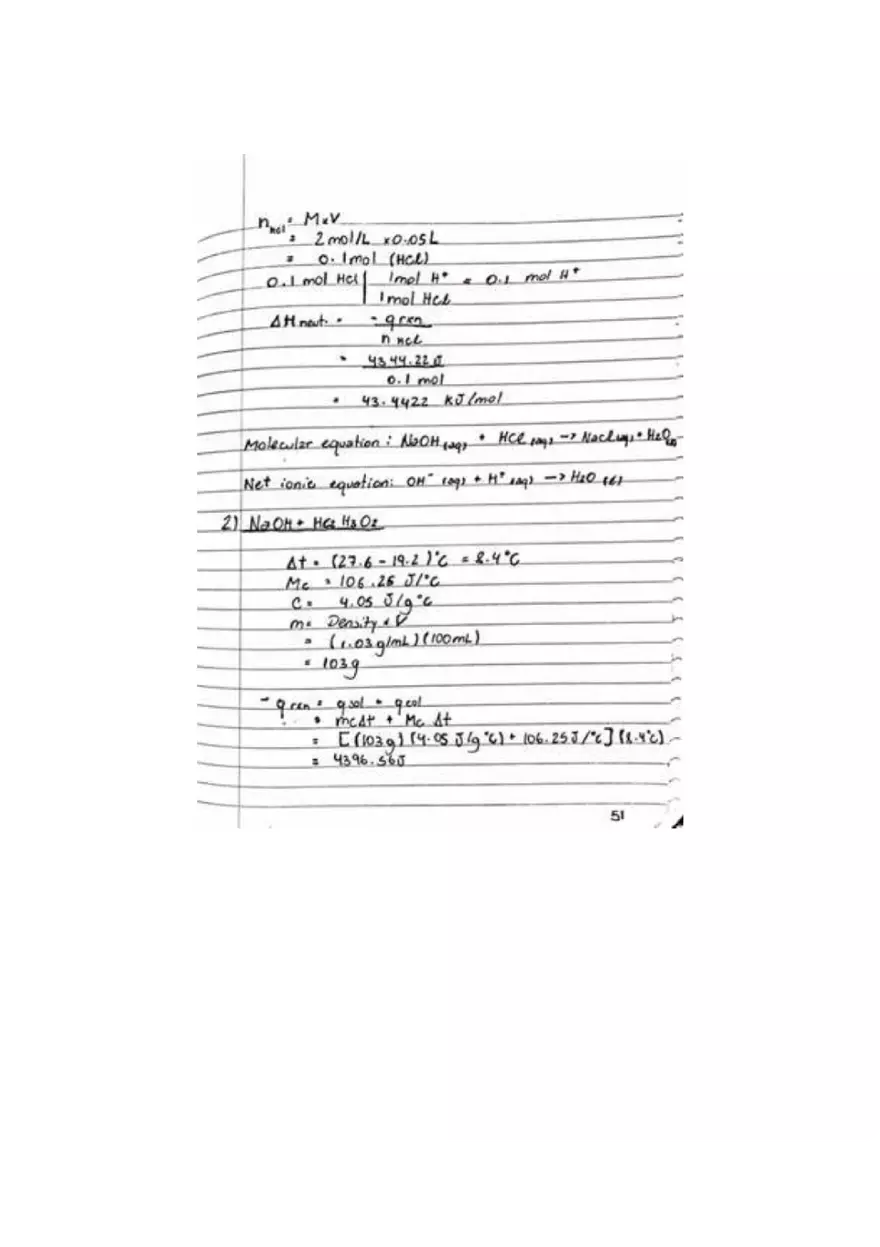 n HCl = M×V
= 2 mol/L × 0.05 L
= 0.1 mol (HCl)
0.1 mol HCl | 1 mol H⁺ = 0.1 mol H⁺
1 mol HCl
ΔH neut. = - q rxn
n HCl
= 4344.22 J
0.1 mol
= 43.4422 kJ/mol
Molecular equation : NaOH (aq) + HCl (aq) → NaCl (aq) + H₂O (l)
Net ionic equation: OH⁻ (aq) + H⁺ (aq) → H₂O (l)
2) NaOH + HC₂H₃O₂
Δt = (27.6 - 19.2)°C = 8.4°C
Mc = 106.25 J/°C
C = 4.05 J/g°C
m = Density × V
= (1.03 g/mL)(100 mL)
= 103 g
- q rxn = q sol + q cal
= mcΔt + Mc Δt
= [(103 g)(4.05 J/g°C) + 106.25 J/°C](8.4°C)
= 4396.56 J
51